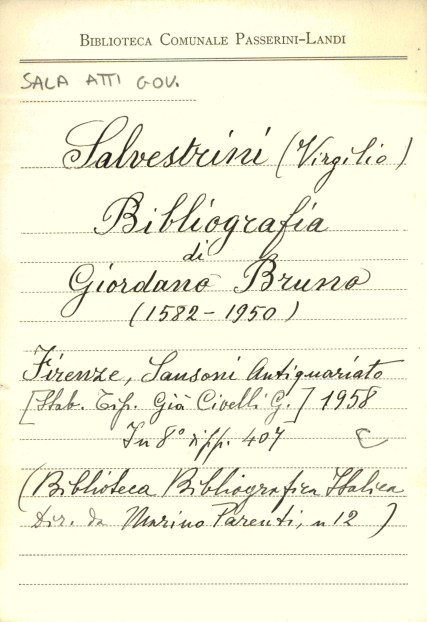 BIBLIOTECA COMUNALE PASSERINI-LANDI
SALA ATTI GOV.
Salvestrini (Virgilio)
Bibliografia
di
Giordano Bruno
(1582-1950)
Firenze, Sansoni Antiquariato
[Stab. Tip. Già Civelli G.] 1958
In 8° pp. 407
(Biblioteca Bibliografica Italica
Dir. da Marino Parenti, n 12)